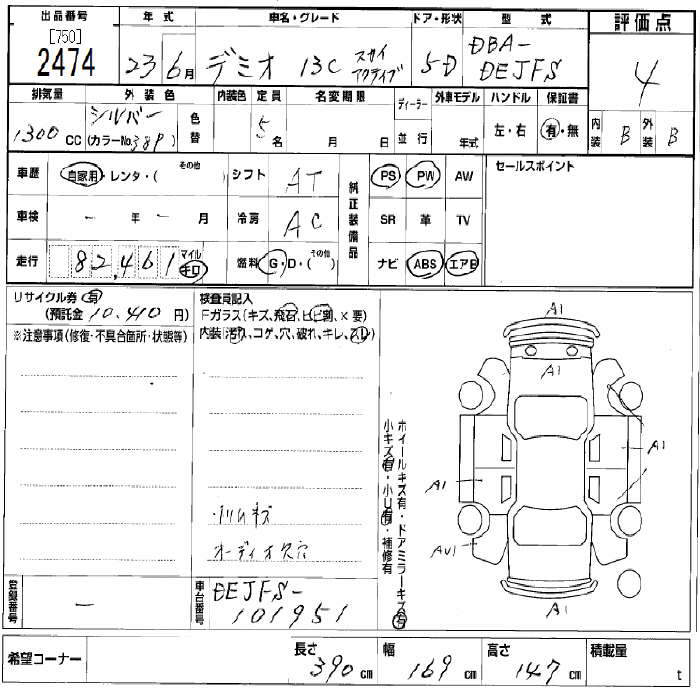 出品番号 年式 車名・グレード ドア・形状 型式 評価点
[750]
2474 23 6月 デミオ 13C スカイアクティブ 5D DBA-DEJFS 4
排気量 外装色 内装色 定員 名変期限 ディーラー 外車モデル ハンドル 保証書
1300cc シルバー (カラーNo.38P) 色替 5名 月 日 並行 年式 左・右 有・無 内装 B 外装 B
車歴 自家用・レンタ・(その他) シフト AT 純正装備品 PS PW AW セールスポイント
車検 - 年 - 月 冷房 AC SR 革 TV
走行 82,461 マイル キロ 燃料 G・D・(その他) ナビ ABS エアB
リサイクル券 有
(預託金 10,410円)
※注意事項(修復・不具合箇所・状態等)
検査員記入
Fガラス(キズ、飛石、ヒビ割、×要)
内装(汚れ、コゲ、穴、破れ、キレ、スレ)
・トリムキズ
オーディオ欠穴
ホイールキズ有・ドアミラーキズ有
小キズ有・小U有・補修有
A1
A1
A1
A1
AU1
A1
登録番号 -
車台番号 DEJFS-101951
希望コーナー 長さ 390cm 幅 169cm 高さ 147cm 積載量 t